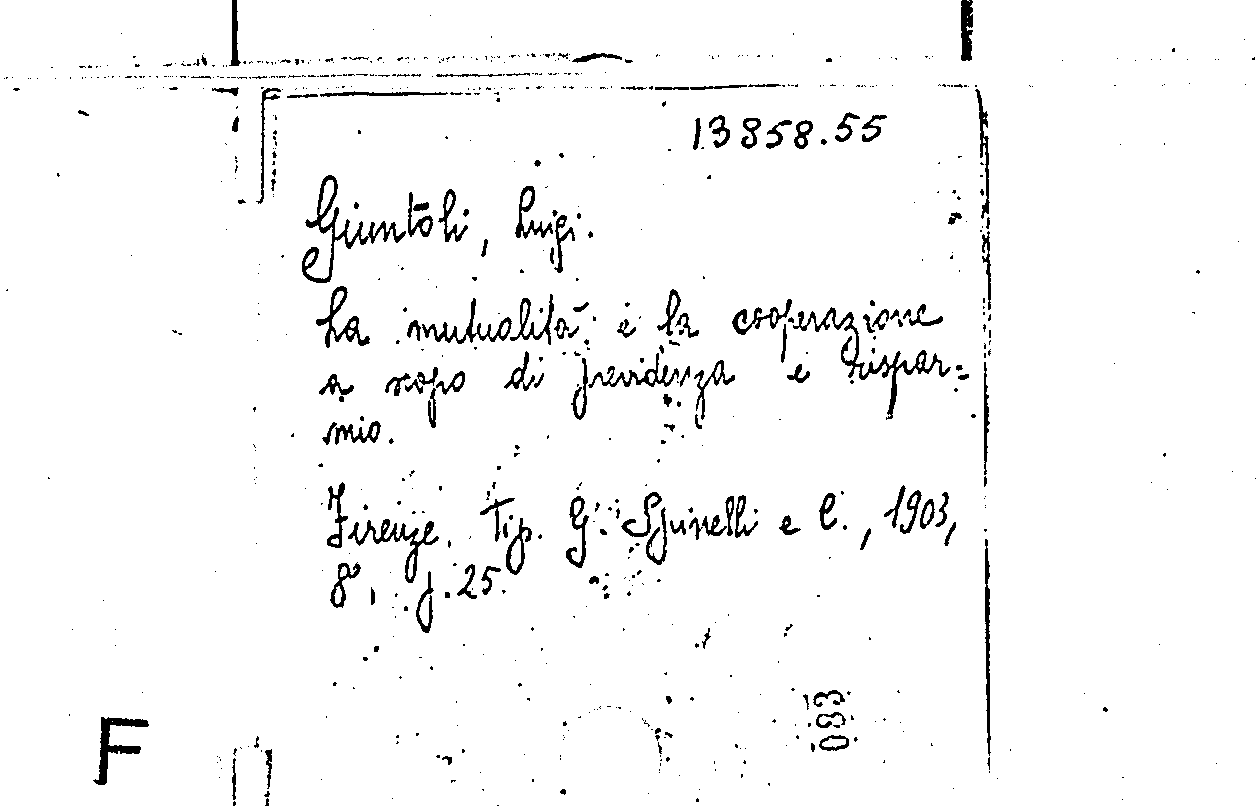 13858.55
Giuntoli, Luigi.
La mutualità e la cooperazione
a scopo di previdenza e rispar=
mio.
Firenze, Tip. G. Spinelli e C., 1903,
8°, p. 25.
083
F